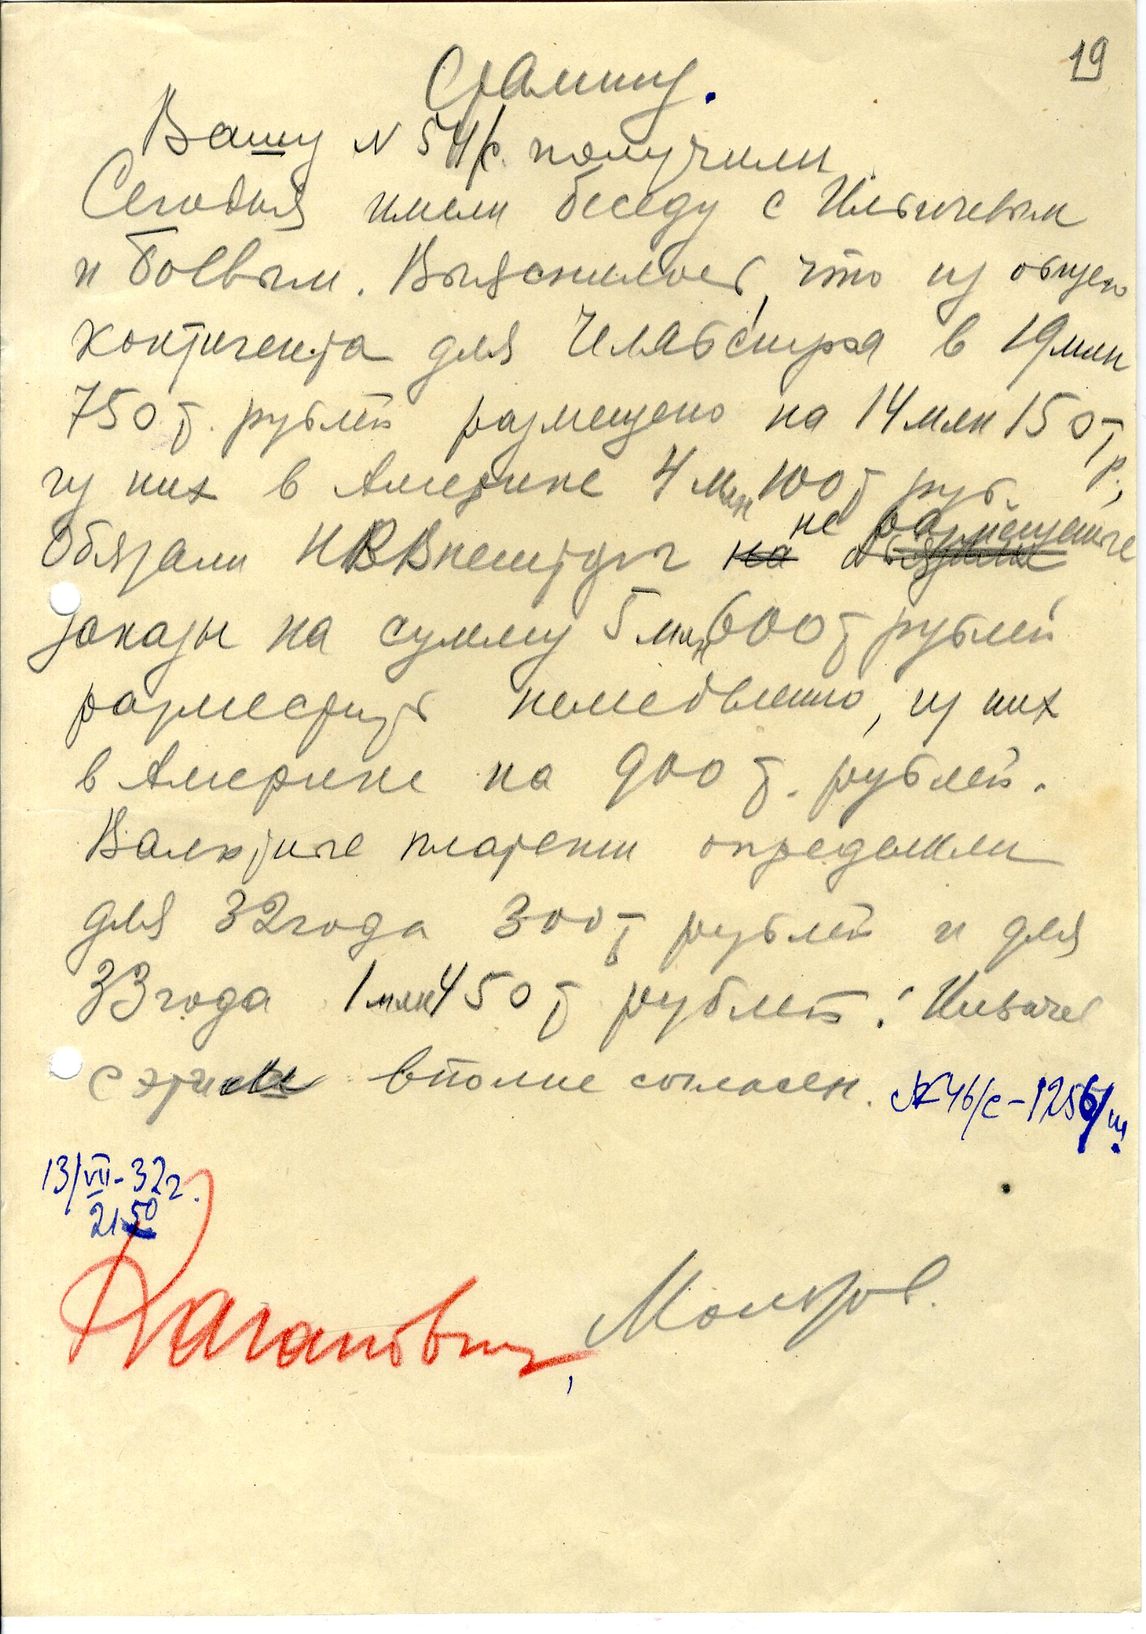 19
Сталину.
Вашу N 54/с. получили
Сегодня имели беседу с Ильичевым
и Боевым. Выяснилось, что из общего
контингента для Челябстроя в 19 млн
750 т. рублей размещено на 14 млн 150 т
р.,
из них в Америке 4 млн 100 т руб.
Обязали НКВнешторг на не размещенные
заказы на сумму 5 млн 600 т рублей
разместить немедленно, из них
в Америке на 900 т. рублей.
Валютные платежи определили
для 32 года 300 т рублей и для
33 года 1 млн 450 т рублей.
с этим вполне согласен. № 46/с-1256/ш
13/VII-32 г.
21 50
Каганович, Молотов.